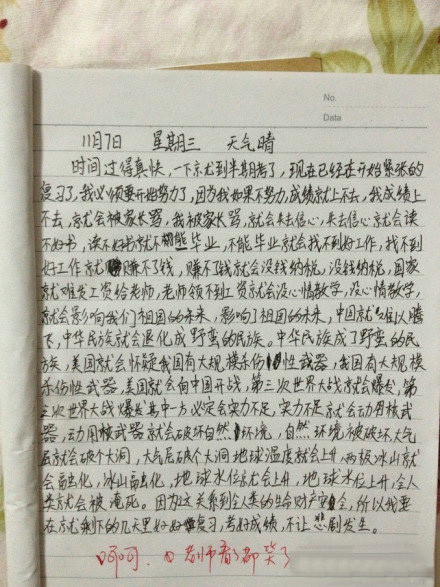 No.
Data
11月7日 星期三 天气晴
时间过得真快,一下就到半期考了,现在已经在开始紧张的
复习了,我必须要开始努力了,因为我如果不努力,成绩就上不去,我成绩上
不去,就会被家长骂,我被家长骂,就会失去信心,失去信心就会读
不好书,读不好书就不能毕业,不能毕业就会找不到好工作,找不到
好工作就赚不了钱,赚不了钱就会没钱纳税,没钱纳税,国家
就难发工资给老师,老师领不到工资就会没心情教学,没心情教学,
就会影响我们祖国的未来,影响了祖国的未来,中国就难以腾
飞,中华民族就会退化成野蛮的民族。中华民族成了野蛮的民
族,美国就会怀疑我国有大规模杀伤性武器,我国有大规模
杀伤性武器,美国就会向中国开战,第三次世界大战就会爆发,第
三次世界大战爆发其中一方必定会实力不足,实力不足就会动用核武
器,动用核武器就会破坏自然环境,自然环境被破坏,大气
层就会破个大洞,大气层破个大洞地球温度就会上升,两极冰山就
会融化,冰山融化,地球水位就会上升,地球水位上升,全人
类就会被淹死。因为这关系到全人类的生命财产安全,所以我要
在就剩下的几天里好好复习,考好成绩,不让悲剧发生。
呵呵. 老师看了都笑了